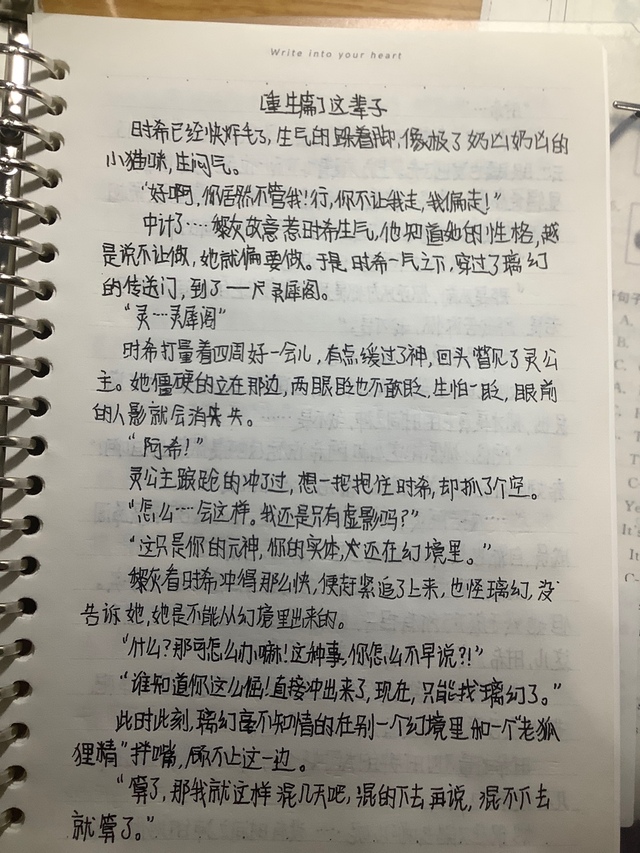 Write into your heart
[重生篇]这辈子
时希已经快炸毛了,生气的跺着脚,像极了奶凶奶凶的
小猫咪,生闷气。
“好啊,你居然不管我!行,你不让我走,我偏走!”
中计了……黎灰故意惹时希生气,他知道她的性格,越
是说不让做,她就偏要做。于是时希一气之下,穿过了璃幻
的传送门,到了——灵犀阁。
“灵…灵犀阁”
时希打量着四周好一会儿,有点缓过了神,回头瞥见了灵公
主。她僵硬的立在那边,两眼眨也不敢眨,生怕一眨,眼前
的人影就会消失。
“阿希!”
灵公主踉跄的冲了过,想一把抱住时希,却抓了个空。
“怎么……会这样。我还是只有虚影吗?”
“这只是你的元神,你的实体,还在幻境里。”
黎灰看时希冲得那么快,便赶紧追了上来,也怪璃幻,没
告诉她,她是不能从幻境里出来的。
“什么?那可怎么办嘛!这种事,你怎么不早说?!”
“谁知道你这么倔!直接冲出来了,现在,只能找璃幻了。”
此时此刻,璃幻毫不知情的在别一个幻境里和一个“老狐
狸精”拌嘴,顾不上这一边。
“算了,那我就这样混几天吧,混的下去再说,混不下去
就算了。”